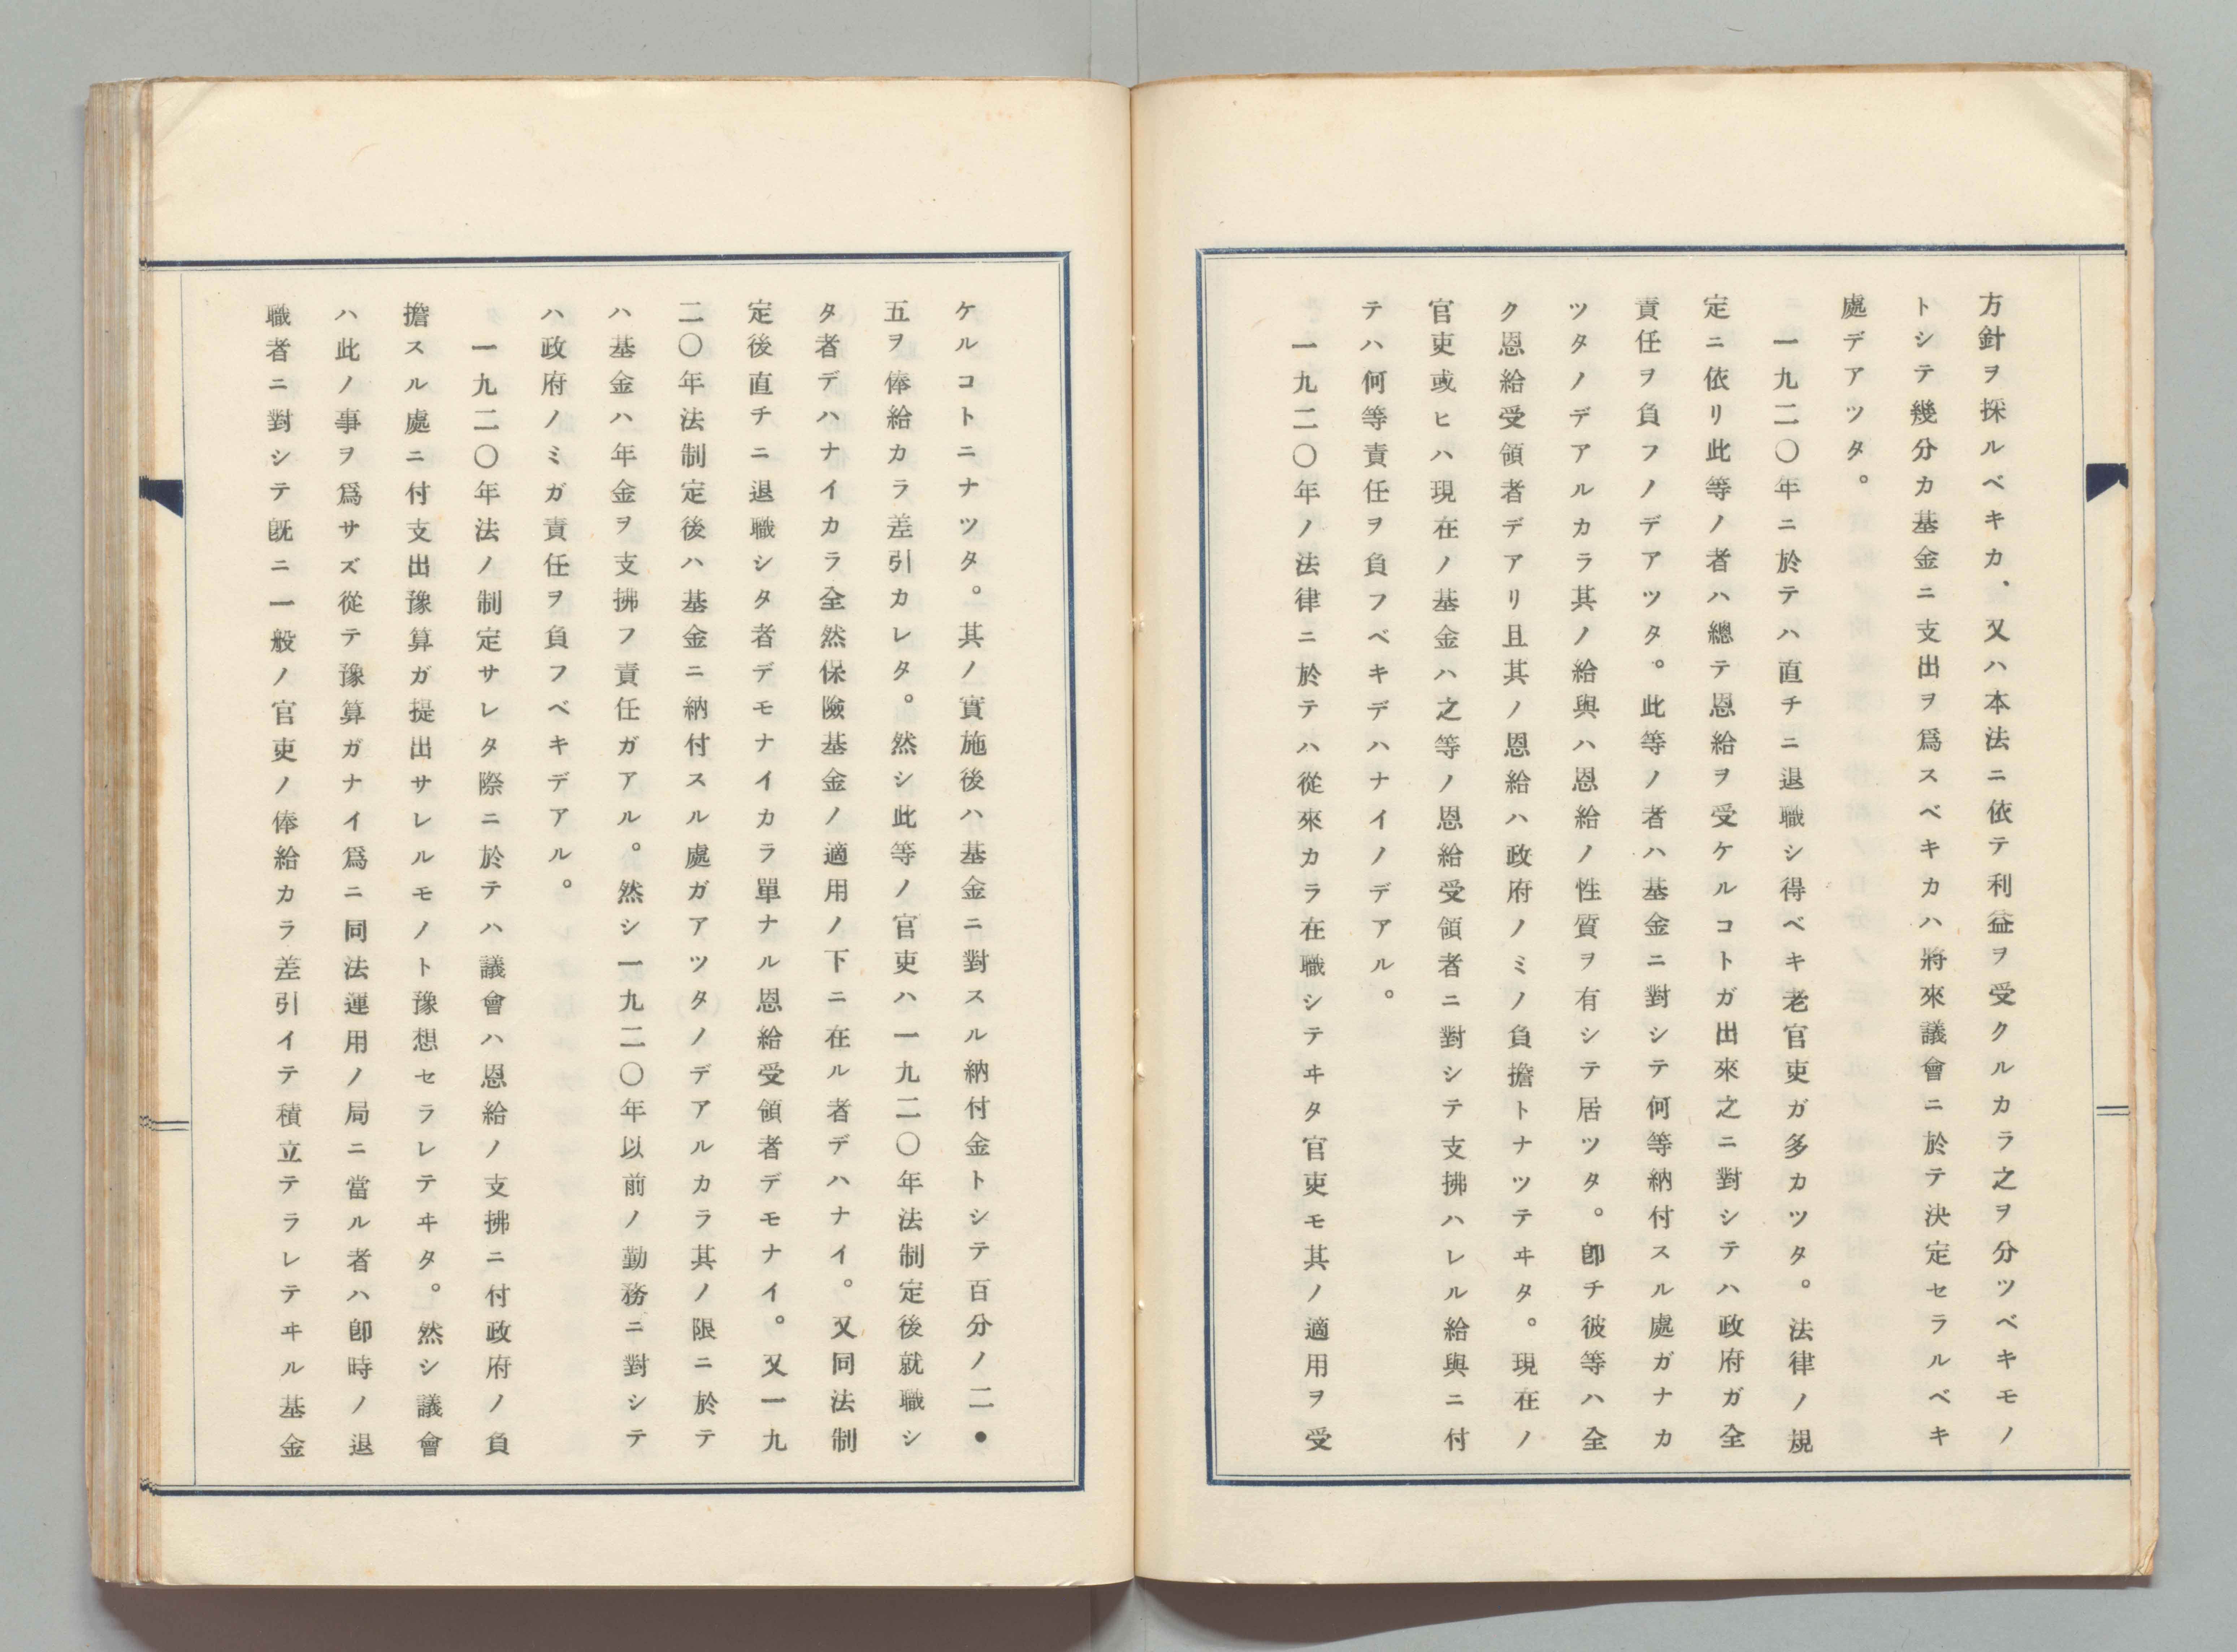 方針ヲ採ルベキカ、又ハ本法ニ依テ利益ヲ受クルカラ之ヲ分ツベキモノ
トシテ幾分カ基金ニ支出ヲ爲スベキカハ將來議會ニ於テ決定セラルベキ
處デアツタ。
一九二〇年ニ於テハ直チニ退職シ得ベキ老官吏ガ多カツタ。法律ノ規
定ニ依リ此等ノ者ハ總テ恩給ヲ受ケルコトガ出來之ニ對シテハ政府ガ全
責任ヲ負フノデアツタ。此等ノ者ハ基金ニ對シテ何等納付スル處ガナカ
ツタノデアルカラ其ノ給與ハ恩給ノ性質ヲ有シテ居ツタ。卽チ彼等ハ全
ク恩給受領者デアリ且其ノ恩給ハ政府ノミノ負擔トナツテヰタ。現在ノ
官吏或ヒハ現在ノ基金ハ之等ノ恩給受領者ニ對シテ支拂ハレル給與ニ付
テハ何等責任ヲ負フベキデハナイノデアル。
一九二〇年ノ法律ニ於テハ從來カラ在職シテヰタ官吏モ其ノ適用ヲ受
ケルコトニナツタ。其ノ實施後ハ基金ニ對スル納付金トシテ百分ノ二●
五ヲ俸給カラ差引カレタ。然シ此等ノ官吏ハ一九二〇年法制定後就職シ
タ者デハナイカラ全然保險基金ノ適用ノ下ニ在ル者デハナイ。又同法制
定後直チニ退職シタ者デモナイカラ單ナル恩給受領者デモナイ。又一九
二〇年法制定後ハ基金ニ納付スル處ガアツタノデアルカラ其ノ限ニ於テ
ハ基金ハ年金ヲ支拂フ責任ガアル。然シ一九二〇年以前ノ勤務ニ對シテ
ハ政府ノミガ責任ヲ負フベキデアル。
一九二〇年法ノ制定サレタ際ニ於テハ議會ハ恩給ノ支拂ニ付政府ノ負
擔スル處ニ付支出豫算ガ提出サレルモノト豫想セラレテヰタ。然シ議會
ハ此ノ事ヲ爲サズ從テ豫算ガナイ爲ニ同法運用ノ局ニ當ル者ハ卽時ノ退
職者ニ對シテ旣ニ一般ノ官吏ノ俸給カラ差引イテ積立テラレテヰル基金